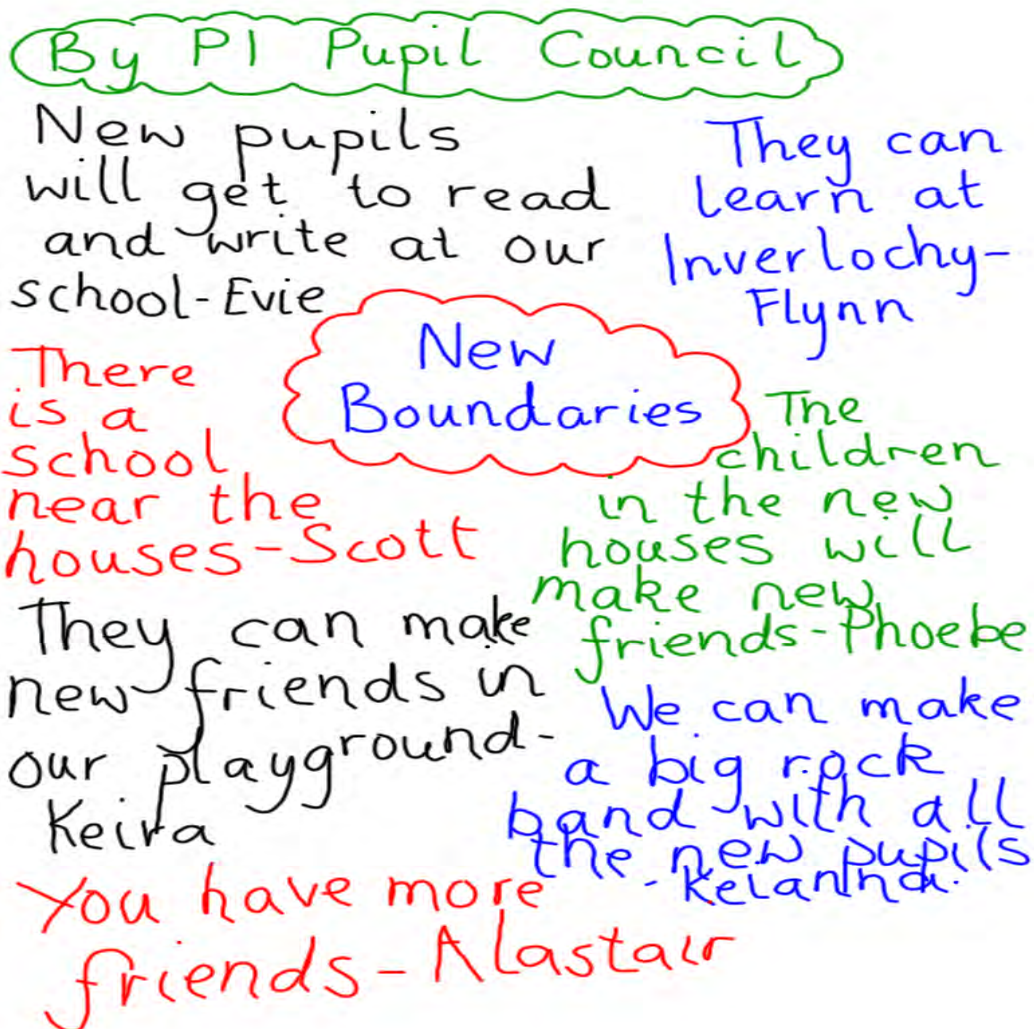 By P1 Pupil Council
New pupils
will get to read
and write at our
school-Evie
They can
learn at
Inverlochy-
Flynn
New
Boundaries
There
is a
school
near the
houses-Scott
The
children
in the new
houses will
make new
friends-Phoebe
They can make
new friends in
our playground-
Keira
We can make
a big rock
band with all
the new pupils
You have more
friends-Alastair